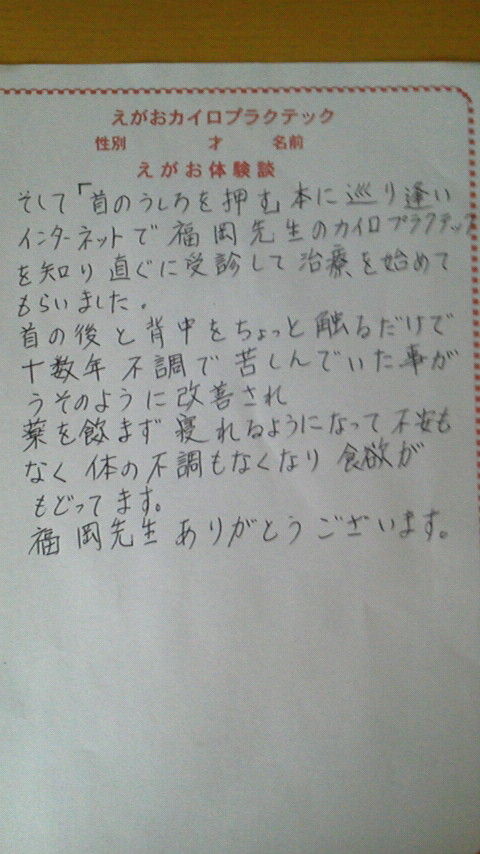 えがおカイロプラクテック
性別 才 名前
えがお体験談
そして「首のうしろを押す」本に巡り逢い
インターネットで福岡先生のカイロプラクテック
を知り直ぐに受診して治療を始めて
もらいました。
首の後と背中をちょっと触るだけで
十数年不調で苦しんでいた事が
うそのように改善され
薬を飲まず寝れるようになって不安も
なく体の不調もなくなり食欲が
もどってます。
福岡先生ありがとうございます。